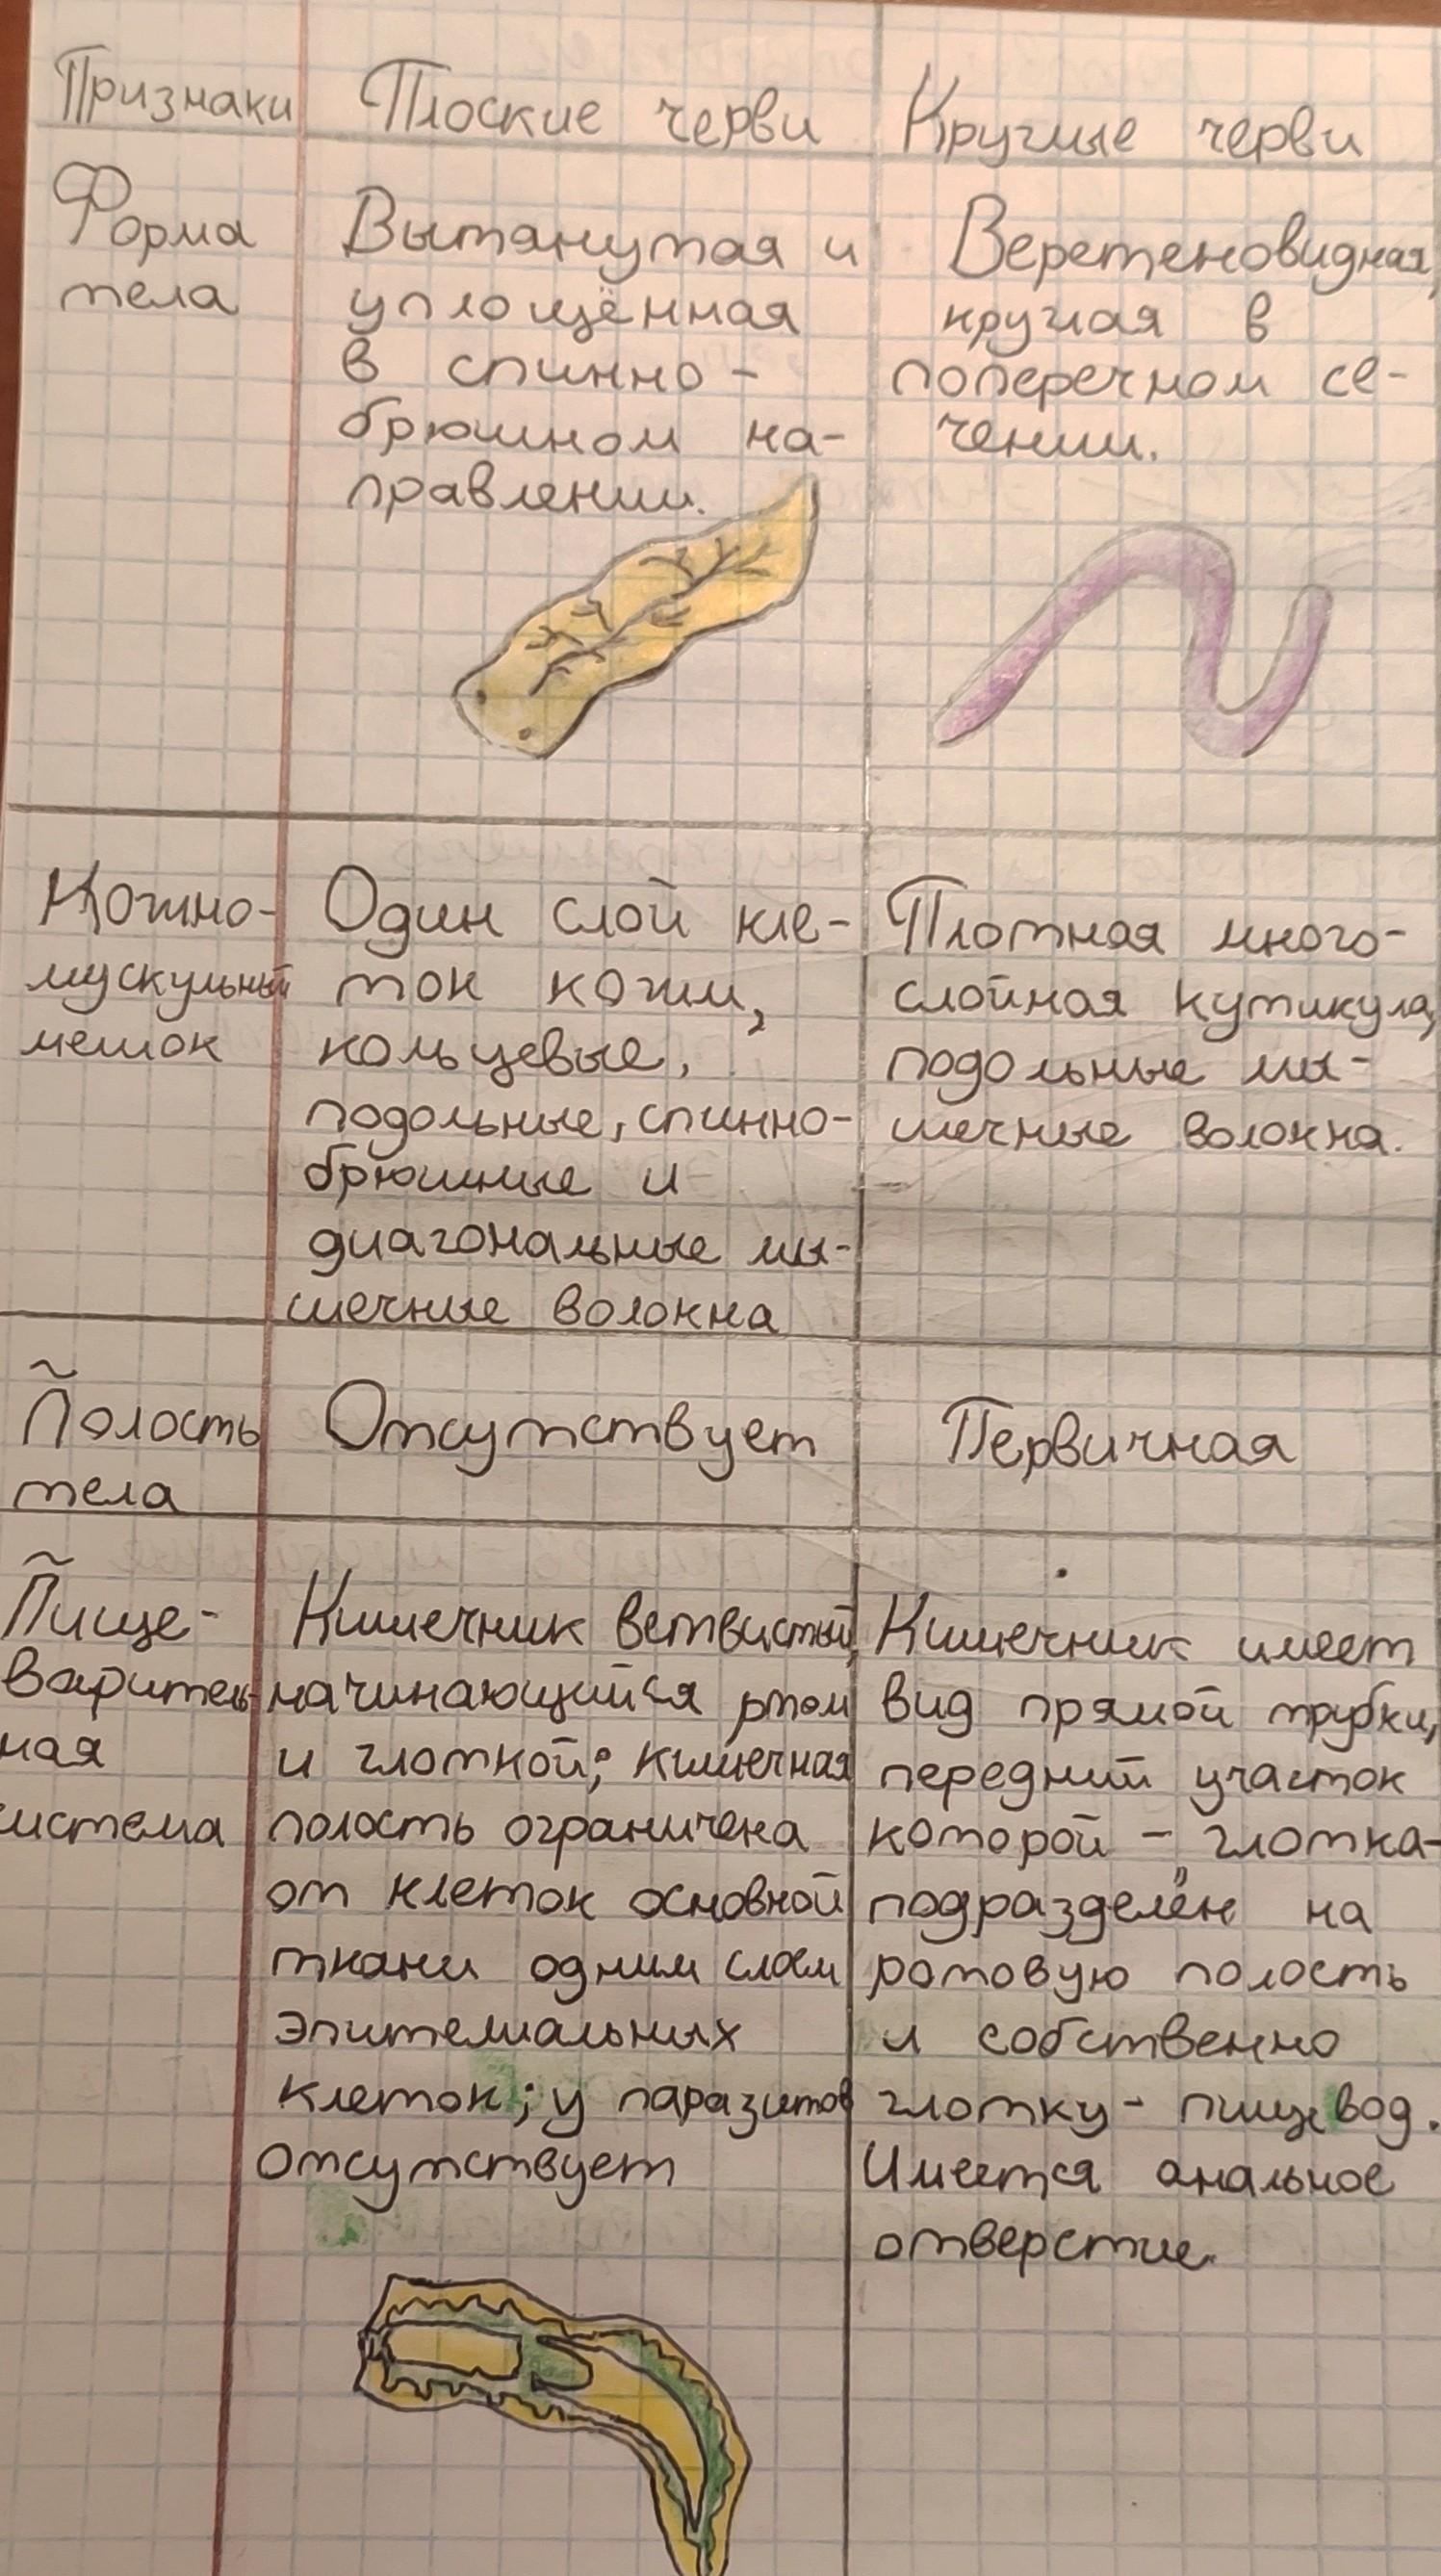 Признаки
Плоские черви
Круглые черви
Форма
тела
Вытянутая и
уплощённая
в спинно-
брюшном на-
правлении.
Веретеновидная,
круглая в
поперечном се-
чении.
Кожно-
мускульный
мешок
Один слой кле-
ток кожи,
кольцевые,
подольные, спинно-
брюшные и
диагональные мы-
шечные волокна
Плотная много-
слойная кутикула,
подольные мы-
шечные волокна.
Полость
тела
Отсутствует
Первичная
Пище-
варитель-
ная
система
Кишечник ветвистый,
начинающийся ртом
и глоткой; кишечная
полость ограничена
от клеток основной
ткани одним слоем
эпителиальных
клеток; у паразитов
отсутствует
Кишечник имеет
вид прямой трубки,
передний участок
которой - глотка-
подразделён на
ротовую полость
и собственно
глотку - пищевод.
Имеется анальное
отверстие.